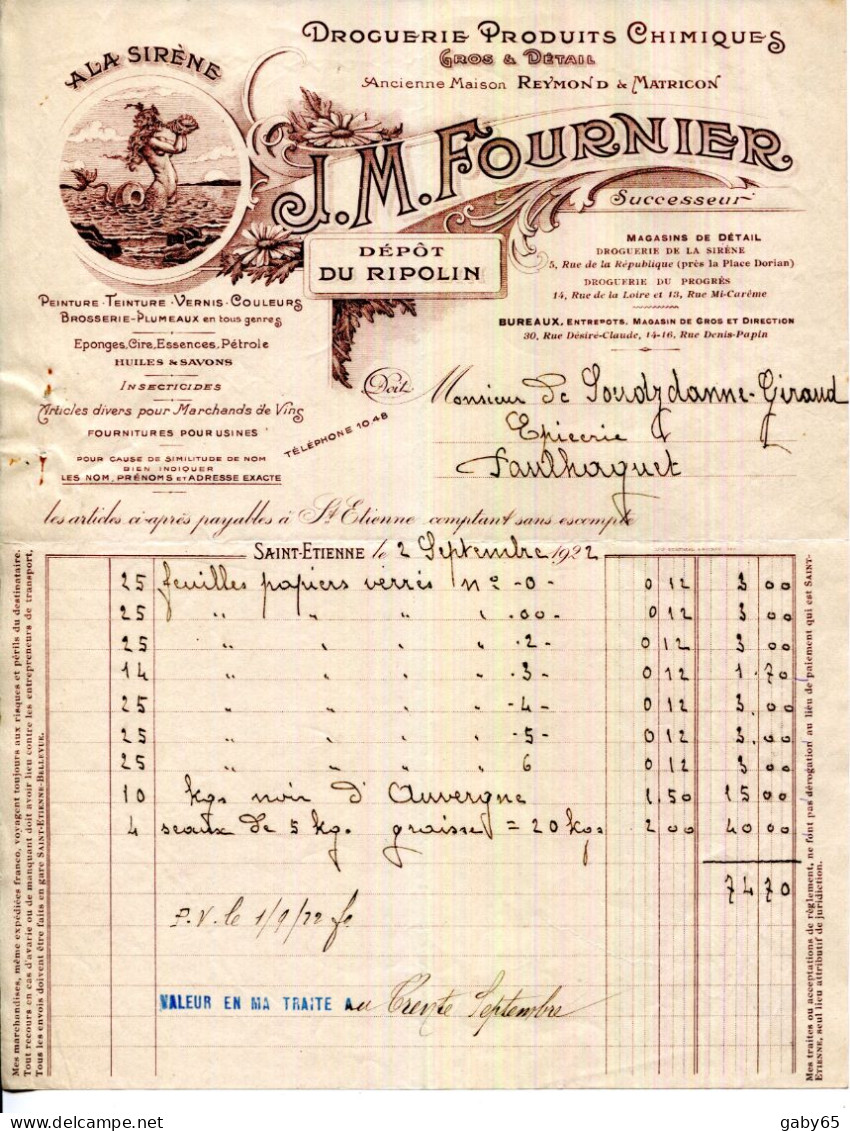 DROGUERIE PRODUITS CHIMIQUES
GROS & DÉTAIL
Ancienne Maison REYMOND & MATRICON
A LA SIRÈNE
J. M. FOURNIER
Successeur
DÉPÔT
DU RIPOLIN
MAGASINS DE DÉTAIL
DROGUERIE DE LA SIRÈNE
5, Rue de la République (près la Place Dorian)
DROGUERIE DU PROGRÈS
14, Rue de la Loire et 13, Rue Mi-Carême
BUREAUX, ENTREPOTS, MAGASIN DE GROS ET DIRECTION
30, Rue Désiré-Claude, 14-16, Rue Denis-Papin
PEINTURE - TEINTURE - VERNIS - COULEURS
BROSSERIE - PLUMEAUX en tous genres
Eponges, Cire, Essences, Pétrole
HUILES & SAVONS
INSECTICIDES
Articles divers pour Marchands de Vins
FOURNITURES POUR USINES
POUR CAUSE DE SIMILITUDE DE NOM
BIEN INDIQUER
LES NOM, PRÉNOMS ET ADRESSE EXACTE
TÉLÉPHONE 10.48
Doit Monsieur De Giraud
Epicerie
Paulhaguet
les articles ci-après payables à St Etienne comptant sans escompte
SAINT-ETIENNE le 2 Septembre 1922
25 feuilles papiers verrés n° -0- 0 12 3 00
25 " " " " .00. 0 12 3 00
25 " " " " .2. 0 12 3 00
14 " " " " .3. 0 12 1.70
25 " " " " -4- 0 12 3.00
25 " " " " -5- 0 12 3.00
25 " " " " 6 0 12 3 00
10 kgs noir d'Auvergne 1.50 15 00
4 seaux de 5 kg. graisse = 20 kgs 2 00 40 00
74 70
P.V. le 1/9/22
VALEUR EN MA TRAITE Au Trente Septembre
Mes marchandises, même expédiées franco, voyagent toujours aux risques et périls du destinataire.
Tout recours en cas d'avarie ou de manquant doit avoir lieu contre les entrepreneurs de transport.
Tous les envois doivent être faits en gare SAINT-ETIENNE-BELLEVUE.
Mes traites ou acceptations de règlement, ne font pas dérogation au lieu de paiement qui est SAINT-
ETIENNE, seul lieu attributif de juridiction.
gaby65